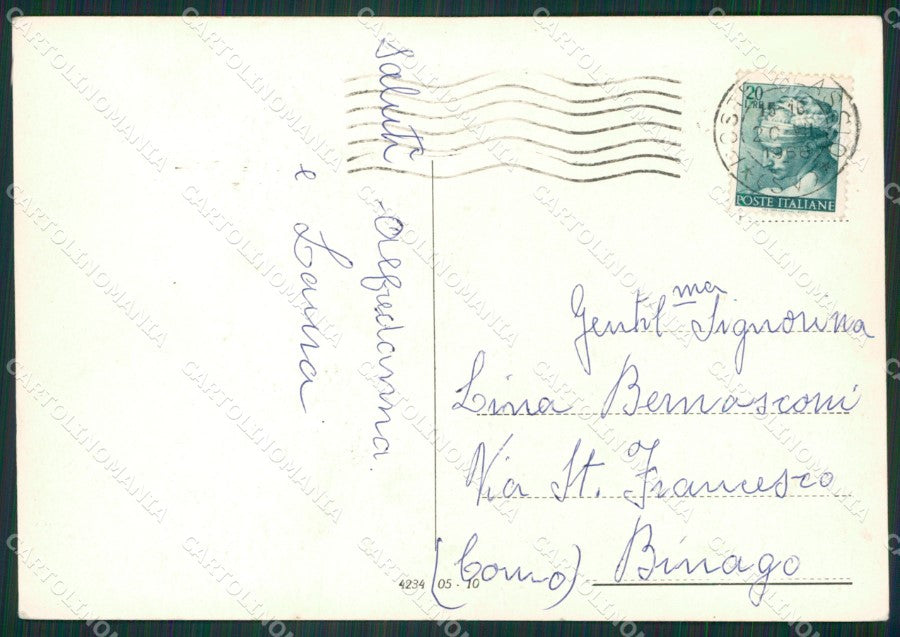 Saluti
Alfredanna.
e Laura
20
LIRE
POSTE ITALIANE
Gentil.ma Signorina
Lina Bernasconi
Via St. Francesco
(Como) Binago
4234 05 - 10
CARTOLINOMANIA